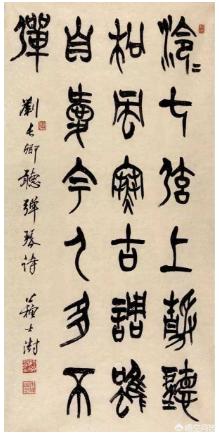 泠〻七弦上靜聽
松風寒古調雖
自愛今人多不
彈
劉長卿聽彈琴詩 蘇士澍
悟空问答